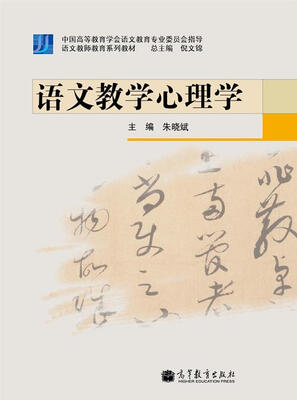 中国高等教育学会语文教育专业委员会指导
语文教师教育系列教材 总主编 倪文锦
语文教学心理学
主 编 朱晓斌
高等教育出版社
HIGHER EDUCATION PRESS